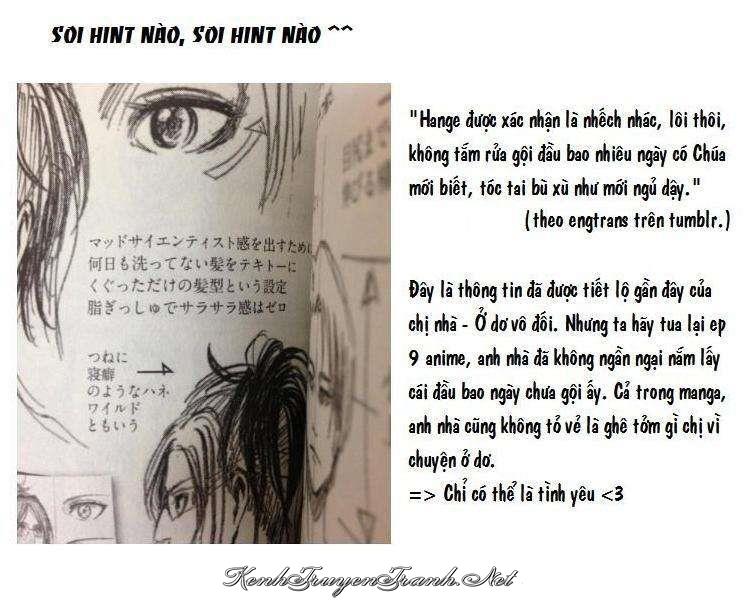 SOI HINT NÀO, SOI HINT NÀO ^^
"Hange được xác nhận là nhếch nhác, lôi thôi,
không tắm rửa gội đầu bao nhiêu ngày có Chúa
mới biết, tóc tai bù xù như mới ngủ dậy."
(theo engtrans trên tumblr.)
マッドサイエンティスト感を出すために
何日も洗ってない髪をテキトーに
くくっただけの髪型という設定
脂ぎっしゅでサラサラ感はゼロ
つねに
寝癖
のようなハネ
ワイルド
ともいう
Đây là thông tin đã được tiết lộ gần đây của
chị nhà - Ở dơ vô đối. Nhưng ta hãy tua lại ep
9 anime, anh nhà đã không ngần ngại nắm lấy
cái đầu bao ngày chưa gội ấy. Cả trong manga,
anh nhà cũng không tỏ vẻ là ghê tởm gì chị vì
chuyện ở dơ.
=> Chỉ có thể là tình yêu <3
KenhTruyenTranh.Net